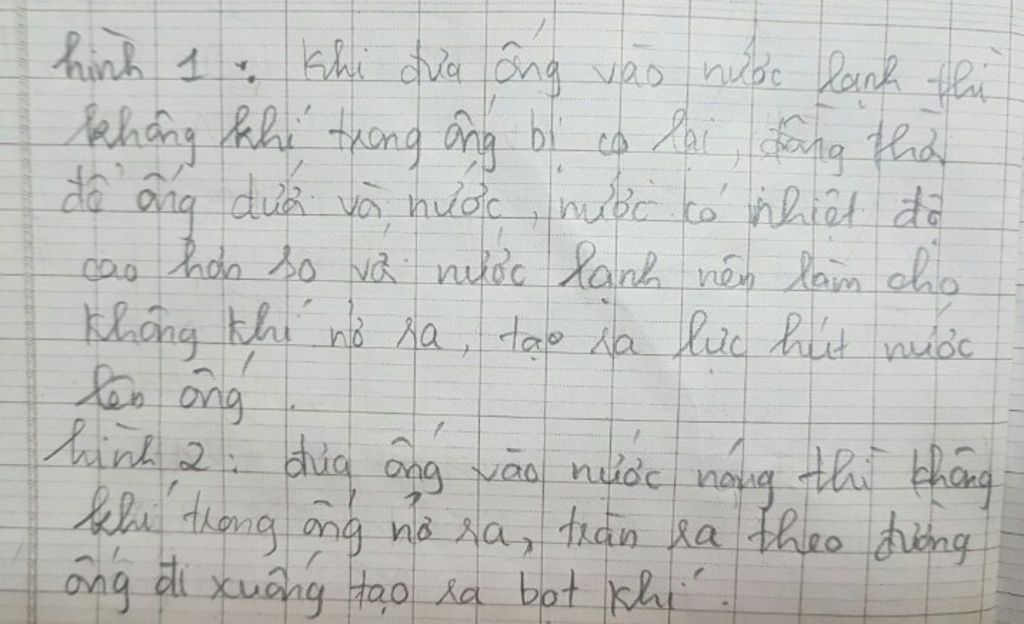 hình 1: Khi đưa ống vào nước lạnh thì
không khí trong ống bị co lại, đồng thời
để ống dưới và nước, nước có nhiệt độ
cao hơn so với nước lạnh nên làm cho
không khí nở ra, tạo ra lực hút nước
lên ống.
hình 2: đưa ống vào nước nóng thì không
khí trong ống nở ra, tràn ra theo đường
ống đi xuống tạo ra bọt khí.